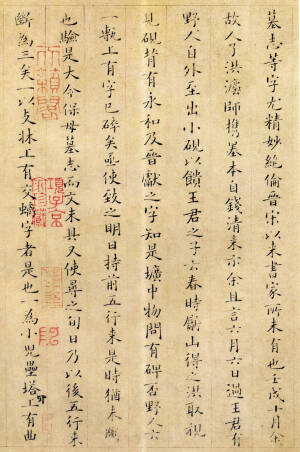 墓志等字尤精妙絶倫晉宋以来書家所未有也壬戌十月余
故人了洪演師携墨本自錢清来示余且言六月六日過王君有
野人自外至出小硯以饋王君之子云春時斸山得之洪取視
見硯背有永和及晉獻之字知是壙中物問有碑否野人云
一甎上有字已碎矣亟使致之明日持前五行来是時猶未斷
也驗是大令保母墓志而文未具又使尋之旬日乃以後五行来
斷為三矣一以支牀上有交螭字者是也一為小兒壘塔上有曲
項子京家珍藏